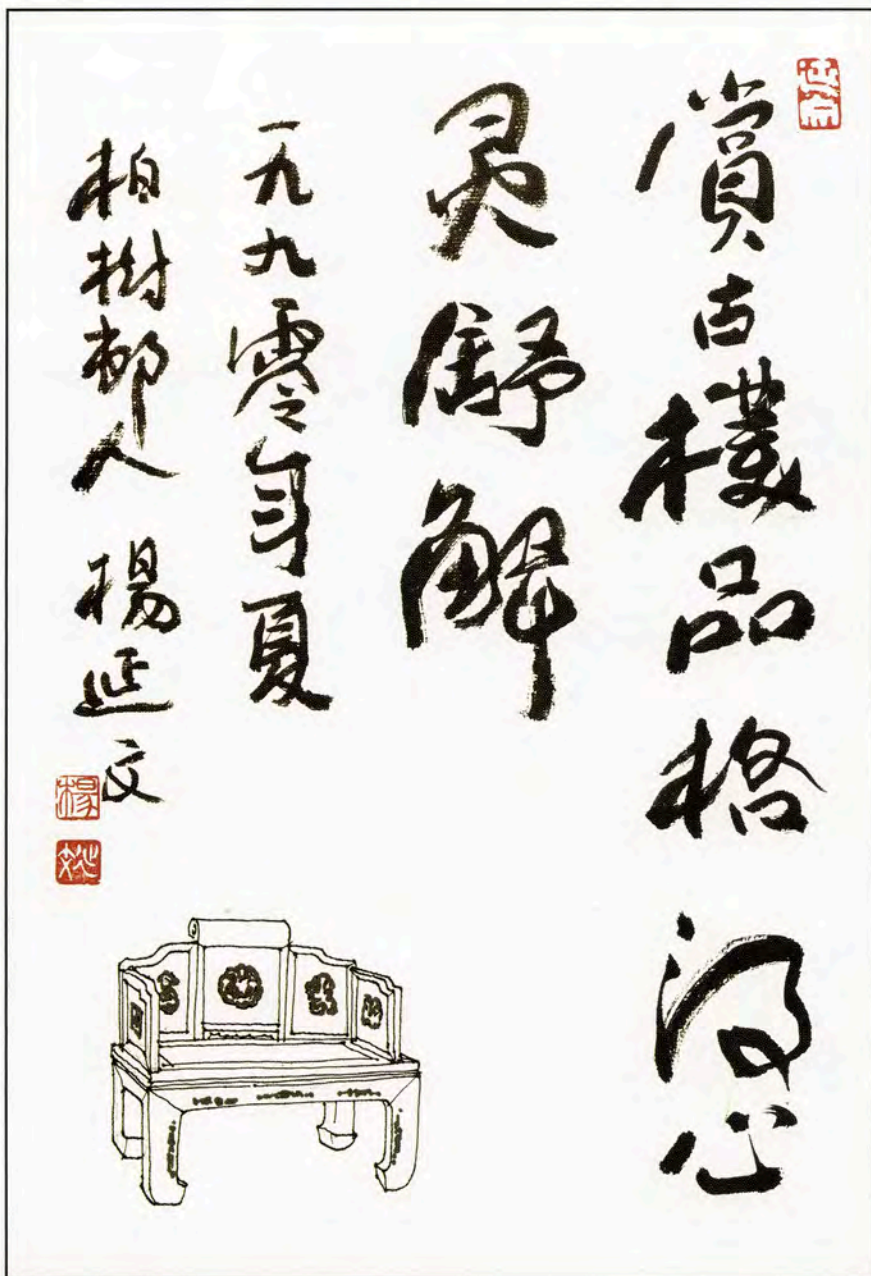 賞古樸品格得心
灵舒解
一九九零年夏
柏樹邨人 楊延文
楊